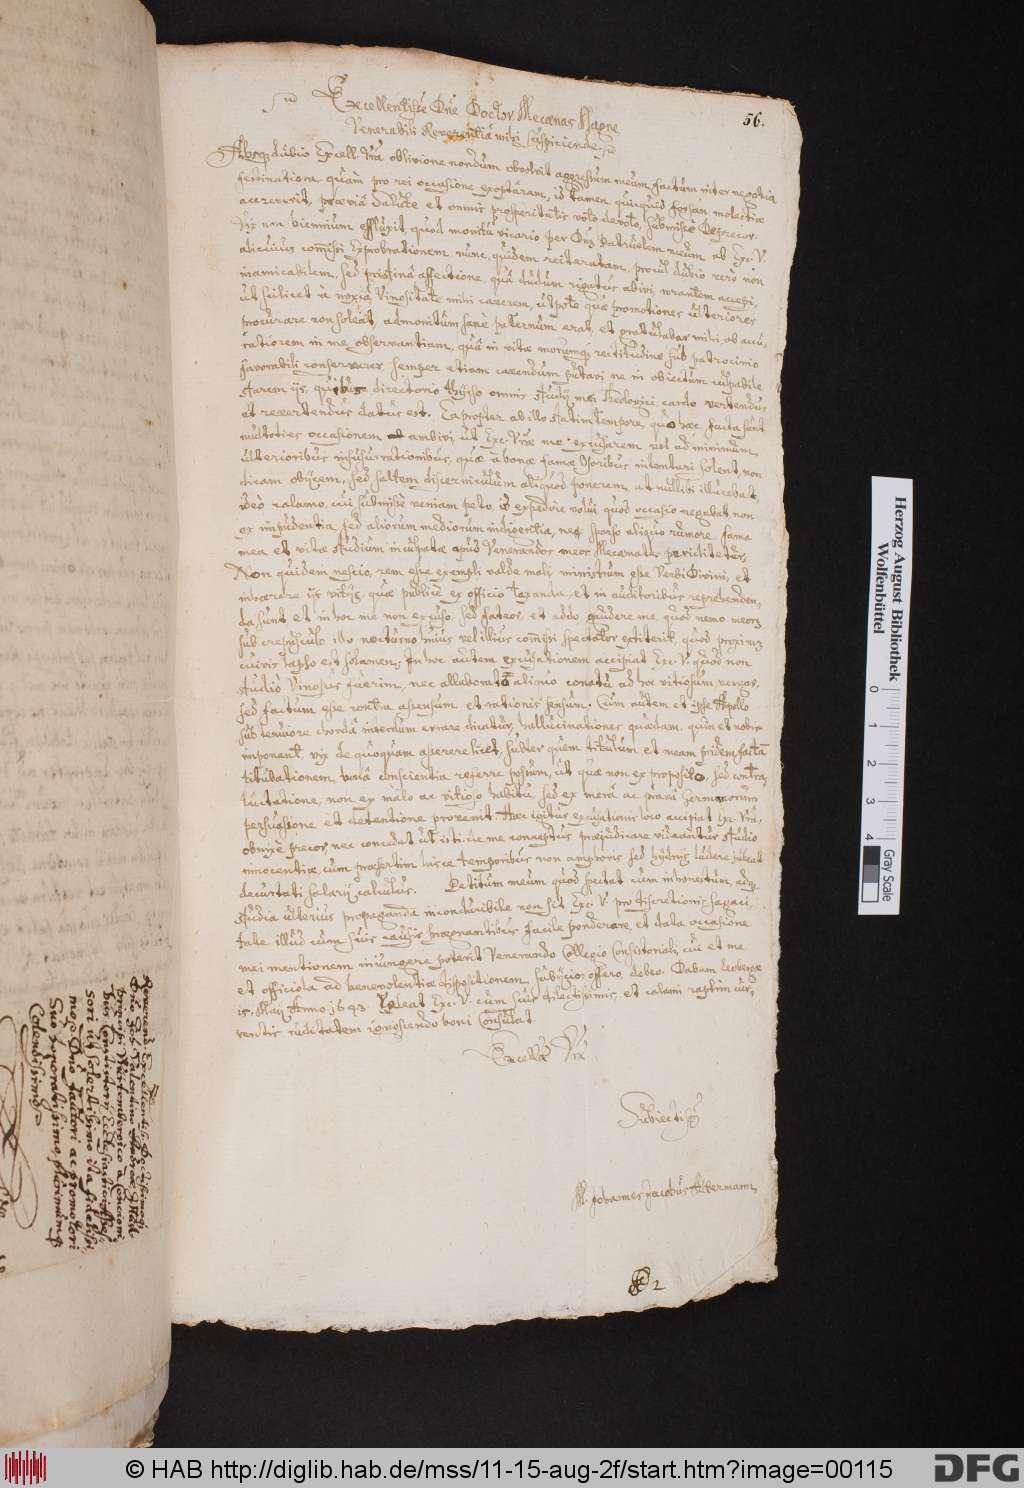 56.
Excellentisse Dne Doctor, Mecaenas Magne
Venerabili Reverentiâ mihi suspiciende
Absq; dubio Excell. Vrã oblivione nondum obolevit aggressum meum, factum inter negotia
festinatiora quàm pro rei occasione exoptâram, id tamen, quicquid forsan molestiae
accreverit, praeviâ salute et omnis prosperitatis voto devoto, submissè deprecor.
Vix non biennium effluxit, quod monitu vicario per Dn. Patruelem meum ab Exc. V.
alicuius commissi exprobrationem, nunc quidem reiteratam, procul dubio verò non
inamicabilem, sed pristinâ affectione, quâ dudum rigatus abivi, accepi,
ut scilicet à noxiâ vinositate mihi caverem, utpote quae promotiones ulteriores
procurare non soleat, admonitum sanè paternum erat, et gratulabar mihi ob accu,
ratiorem in me observantiam, quâ in vitae morumq; rectitudine sub patrocinio
favorabili conservarer, semper etiam cavendum putavi ne in obiectum culpabile
starem ijs, quibus directorio omnis studij mei Theologici cardo vertendus
et revertendus datus est. Eapropter ab illo statim tempore, quo haec facta sunt
multoties occasionem ambivi, ut Exc. Vrae me excusarem vel ad minimum
ulterioribus insusurrationibus, quae à bonae famae osoribus intentari solent, non
dicam obijcem, sed saltem diverticulum aliquod ponerem, at nullibi illucebat,
ideò calamo, cui submissè veniam peto, id expedire volui, quod occasio negabat, non
ex impudentia, sed aliorum mediorum indigentia, ne sparso aliquo rumore fama
mea et vitae studium inculpatae apud Venerandos meos Mecaenates periclitetur.
Non quidem nescio, rem esse exempli valde mali, ministrum esse Verbi Divini, et
inhaerere ijs vitijs, quae publicè ex officio taxanda, et in auditoribus reprehenden,
da sunt et in hoc me non excuso, sed fateor, et addo, pudere me, quod nemo meorum
sub crepusculo illo nocturno huius vel illius commissi spectator extiterit, quod proximum
cuivis lapso est solamen. In hoc autem excusationem accipiat Exc. V. quod non
studio vinosus fuerim, nec allaborato aliquo conatu ad hoc vitiosum vergas,
sed factum esse contra assensum et rationis sensum. Cum autem et ipse Apollo
sub tenuiore chordâ interdum errare dicatur, hallucinationes quaedam, quin et nobis
imponant, vix de quoquam asserere licet, subter quem titulum et meam pridem factã
titubationem, bonâ conscientia referre possum, ut quae non ex proposito, sed contra,
luctatione, non ex malo ac vitioso habitu, sed ex merâ ac pravâ
persuasione et detentione provenit. Hoc igitur excusationis loco accipiat Exc. Vra,
obnixè precor, nec concedat ut isti de me conceptus praejudicare videantur studio
innocentiae, cum praesertim hisce temporibus non amphoris sed hydrijs ludere jubeat
decurtati salarij calculus. Petitum meum quod spectat cum inhonestum, adq;
studia ulterius propaganda inconducibile non sit Exc. V. pro discretionis sagaci,
tate illud cum suis causis praegnantibus facile ponderare, et data occasione
mei mentionem iniungere poterit Venerando Collegio Consistoriali, cui et me
et officiola ad benevolentiae dispositionem subijcio, offero, debeo. Dabam
15. Maij Anno 1643. Valeat Exc. V. cum suis dilectissimis, et calami raptim cur,
rentis ruditatem cognoscendo boni consulat
Excellae Vrae
Subiectiss
M. Johannes Jacobus Akermann
2
Reverend. Excellentiss. Doctissimoq;
Dno Joh. Valentino Andreae, Theol.
Principi Würtembergico à Concioni
bus, Consistorij Ecclesiastici Asses
sori ut solertissimo ita fidelissi
mo, Dno fautori ac promotori
suo honoratissimo, plurimumq;
Colendissimo
Herzog August Bibliothek
Wolfenbüttel
0 1 2 3 4
Gray Scale
© HAB http://diglib.hab.de/mss/11-15-aug-2f/start.htm?image=00115
DFG